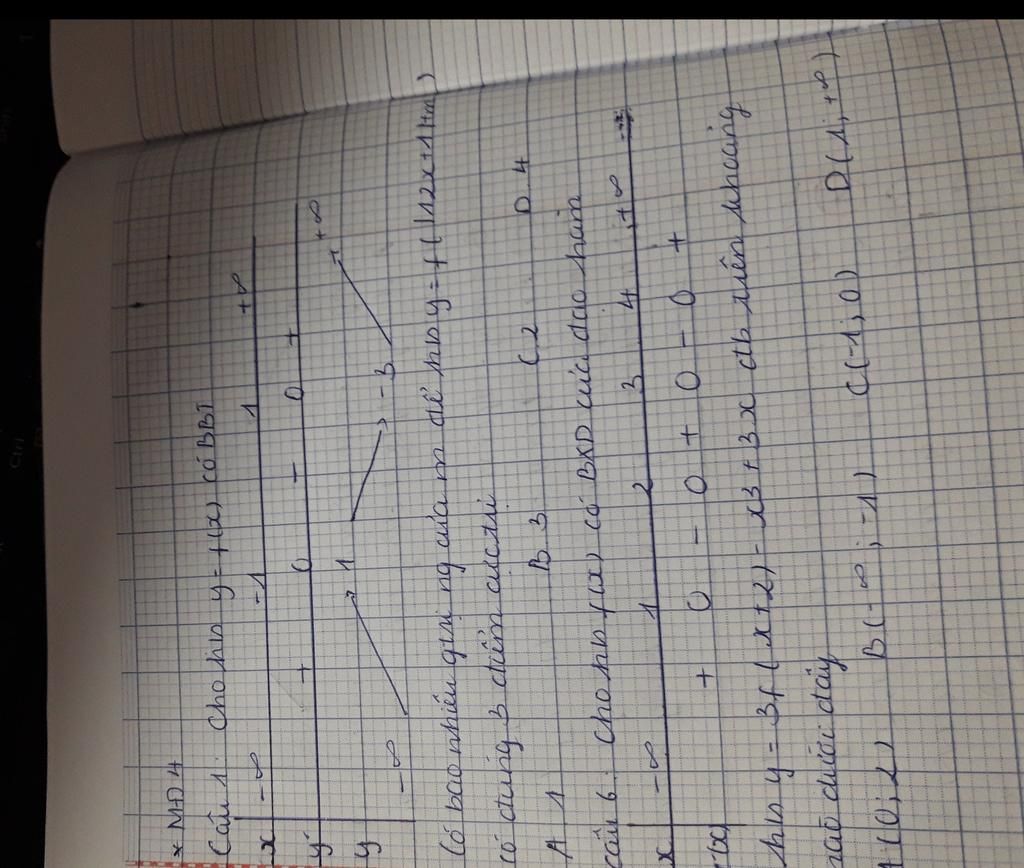 * MĐ4
Câu 1: Cho hso y = f(x) có BBT
x -∞ -1 1 +∞
y' + 0 - 0 +
y -∞ 1 -3 +∞
Có bao nhiêu giá trị ng của m để hso y = f(|12x+1|+m)
có đúng 3 điểm cực trị
A 1 B 3 C 2 D 4
câu 6: Cho hso f(x) có BXD của đạo hàm
x -∞ 1 2 3 4 +∞
f'(x) + 0 - 0 + 0 - 0 +
hso y = 3f(x+2) - x3 + 3x đb trên khoảng
nào dưới đây
A (0; 2) B(-∞; -1) C(-1; 0) D(1; +∞)